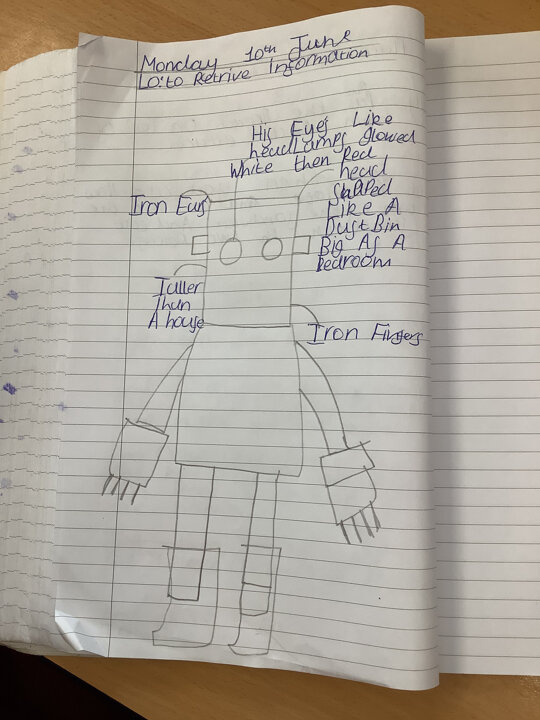 Monday 10th June
LO: to Retrive Information
His Eyes Like
headLamps Glowed
White then Red
head
shaPed
Like A
Dust Bin
Big As A
Bedroom
Iron Ears
Taller
Than
A house
Iron Fingers